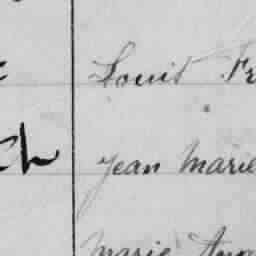 Louis Fr
ch Jean Marie
Marie Ann